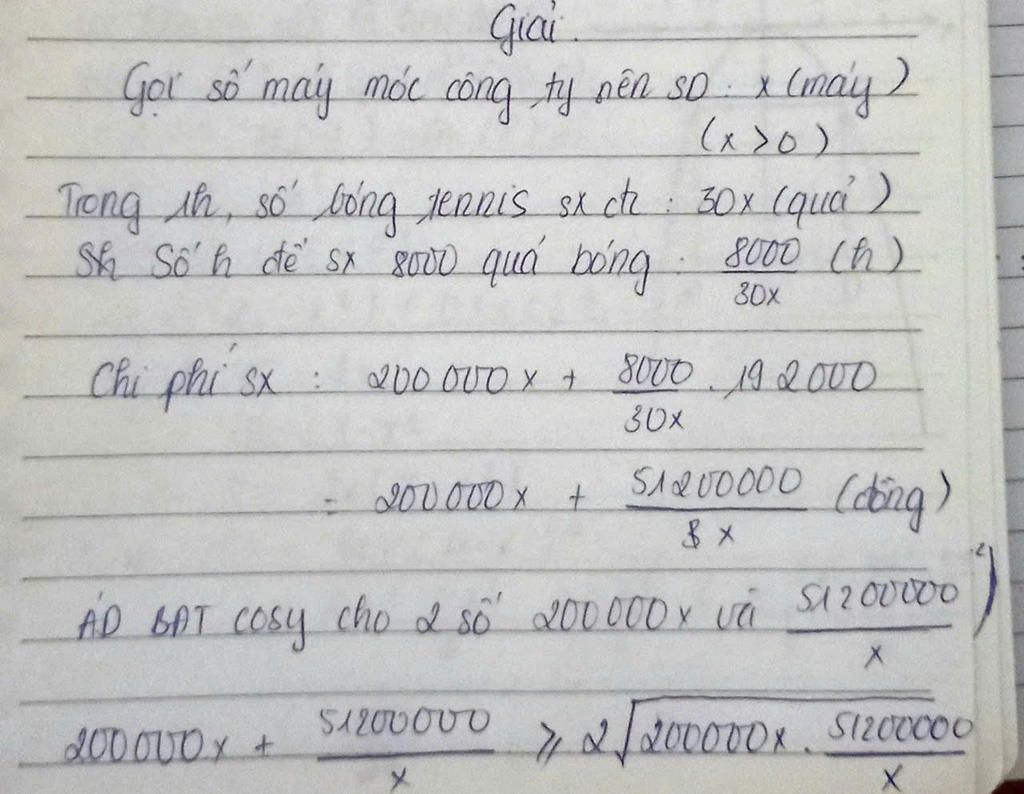 Giải.
Gọi số máy móc công ty nên SD : x (máy)
(x > 0)
Trong 1h, số bóng tennis sx đc : 30x (quả)
Số h để sx 8000 quả bóng : 8000/30x (h)
Chi phí sx : 200 000 x + 8000/30x . 192000
= 200 000 x + 51200000/x (đồng)
ÁD BĐT COSY cho 2 số 200000x và 51200000/x
200000x + 51200000/x ⩾ 2√200000x . 51200000/x